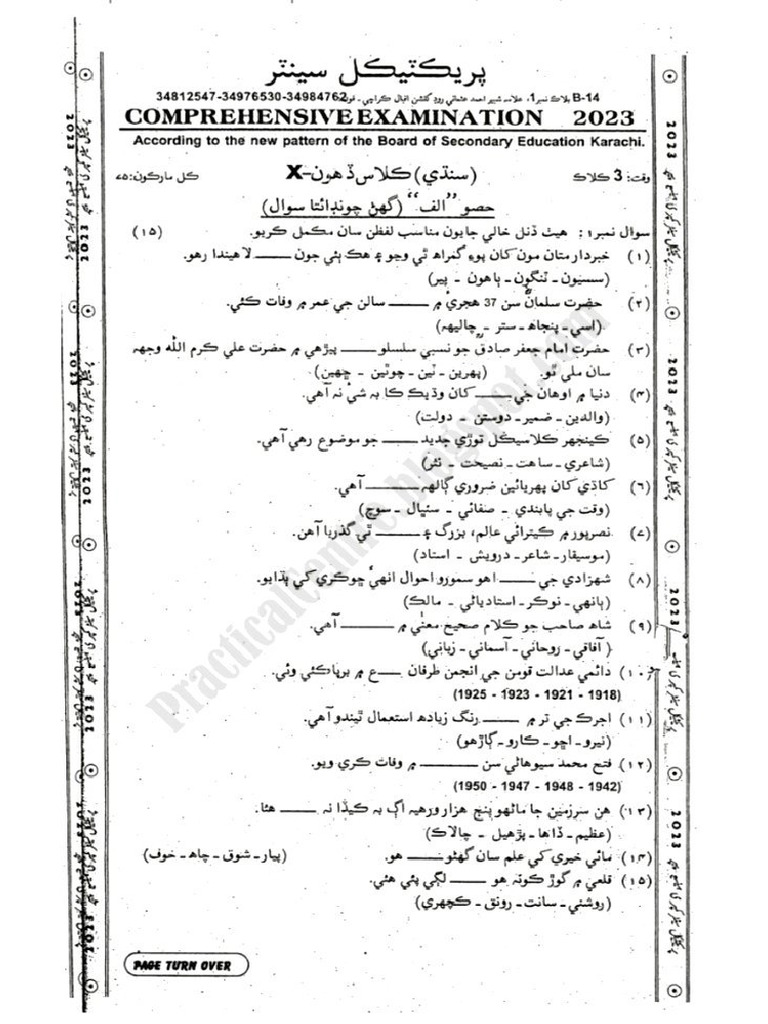 پريڪٽيڪل سينٽر
B-14 بلاڪ نمبر 1، علامه شبير احمد عثماني روڊ گلشن اقبال ڪراچي - فون: 34812547-34976530-34984762
COMPREHENSIVE EXAMINATION 2023
According to the new pattern of the Board of Secondary Education Karachi.
وقت: 3 ڪلاڪ (سنڌي) ڪلاس ڏهون-X ڪل مارڪون: ۷۵
حصو "الف" (گهڻ چونڊائتا سوال)
سوال نمبر ۱: هيٺ ڏنل خالي جايون مناسب لفظن سان مڪمل ڪريو. (۱۵)
(۱) خبردار متان مون کان پوءِ گمراهه ٿي وڃو ۽ هڪ ٻئي جون ــــــ لاهيندا رهو.
(سسيون - ٽنگون - ٻانهون - پير)
(۲) حضرت سلمانؓ سن 37 هجريءَ ۾ ــــــ سالن جي عمر ۾ وفات ڪئي.
(اسي - پنجاهه - ستر - چاليهه)
(۳) حضرت امام جعفر صادق جو نسبي سلسلو ــــــ پيڙهي ۾ حضرت علي ڪرم الله وجهه
سان ملي ٿو. (پهرين - ٽين - چوٿين - ڇهين)
(۴) دنيا ۾ اوهان جي ــــــ کان وڌيڪ ڪا به شيءِ نه آهي.
(والدين - ضمير - دوستن - دولت)
(۵) ڪينجهر ڪلاسيڪل توڙي جديد ــــــ جو موضوع رهي آهي.
(شاعري - ساهت - نصيحت - نثر)
(۶) کاڌي کان پهريائين ضروري ڳالهه ــــــ آهي.
(وقت جي پابندي - صفائي - سنڀال - سوچ)
(۷) نصرپور ۾ ڪيترائي عالم، بزرگ ۽ ــــــ ٿي گذريا آهن.
(موسيقار - شاعر - درويش - استاد)
(۸) شهزادي جي ــــــ اهو سمورو احوال انهيءَ ڇوڪري کي ٻڌايو.
(ٻانهي - نوڪر - استادياڻي - مالڪ)
(۹) شاهه صاحب جو ڪلام صحيح معنيٰ ۾ ــــــ آهي.
(آفاقي - روحاني - آسماني - زباني)
(۱۰) دائمي عدالت قومن جي انجمن طرفان ــــــ ع ۾ برپا ڪئي وئي.
(1918 - 1921 - 1923 - 1925)
(۱۱) اجرڪ جي تر ۾ ــــــ رنگ زياده استعمال ٿيندو آهي.
(نيرو - اڇو - ڪارو - ڳاڙهو)
(۱۲) فتح محمد سيوهاڻي سن ــــــ ۾ وفات ڪري ويو.
(1942 - 1948 - 1947 - 1950)
(۱۳) هن سرزمين جا ماڻهو پنج هزار ورهيه اڳ به ڪيڏا نه ــــــ هئا.
(عظيم - ڏاها - پڙهيل - چالاڪ)
(۱۴) مائي خيري کي علم سان گهڻو ــــــ هو. (پيار - شوق - چاهه - خوف)
(۱۵) قلعي ۾ گوڙ ڪونه هو ــــــ لڳي پئي هئي.
(روشني - سانت - رونق - ڪچهري)
PAGE TURN OVER
Practicalcentre.blogspot.com
2023
2023
2023
2023